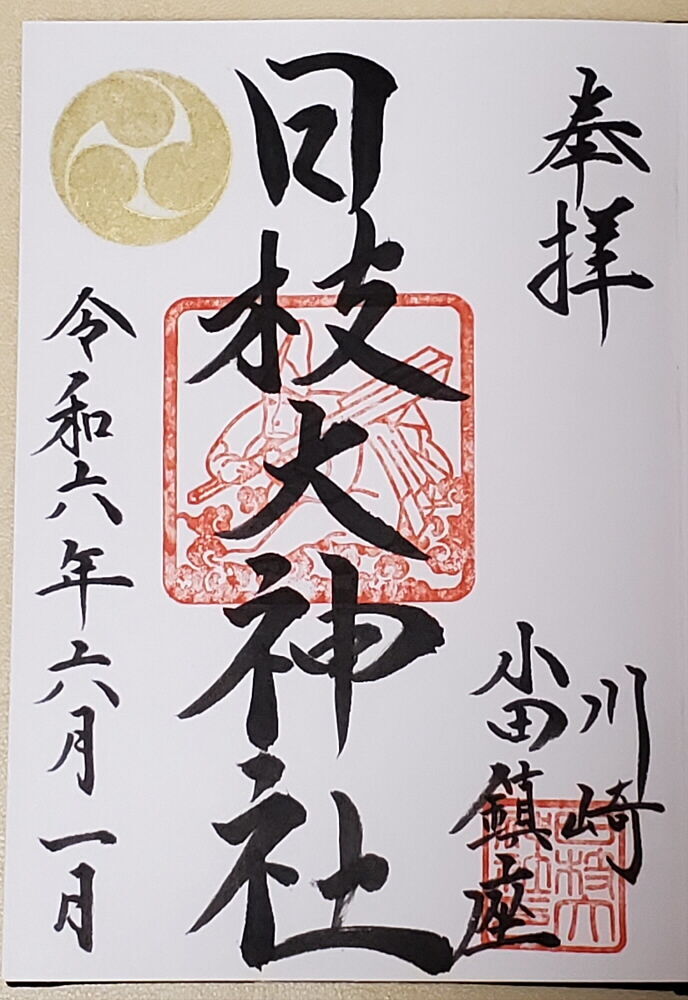 奉拝
川崎
小田鎮座
日枝大神社
令和六年六月一日